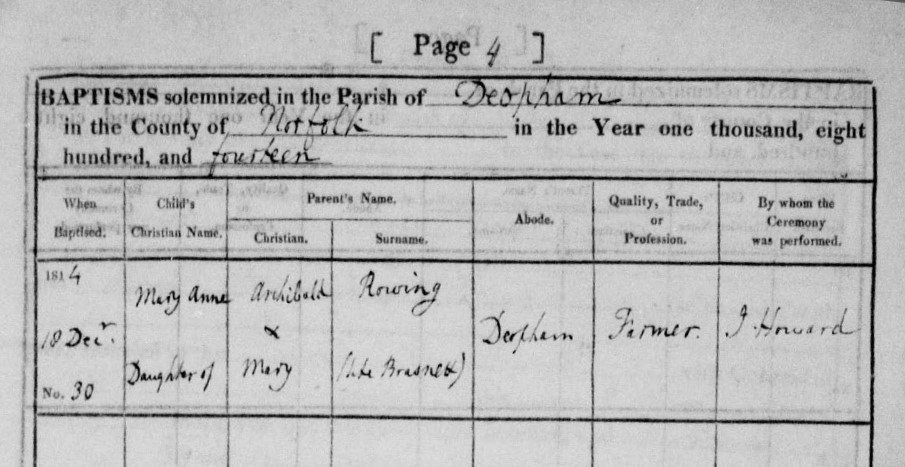 [ Page 4 ]
BAPTISMS solemnized in the Parish of Deopham
in the County of Norfolk in the Year one thousand, eight
hundred, and fourteen
When Baptised.
Child's Christian Name.
Parent's Name.
Christian.
Surname.
Abode.
Quality, Trade, or Profession.
By whom the Ceremony was performed.
1814
18 Decr.
No. 30
Mary Anne
Daughter of
Archibald
&
Mary
Rowing
(late Brasnett)
Deopham
Farmer.
J. Howard